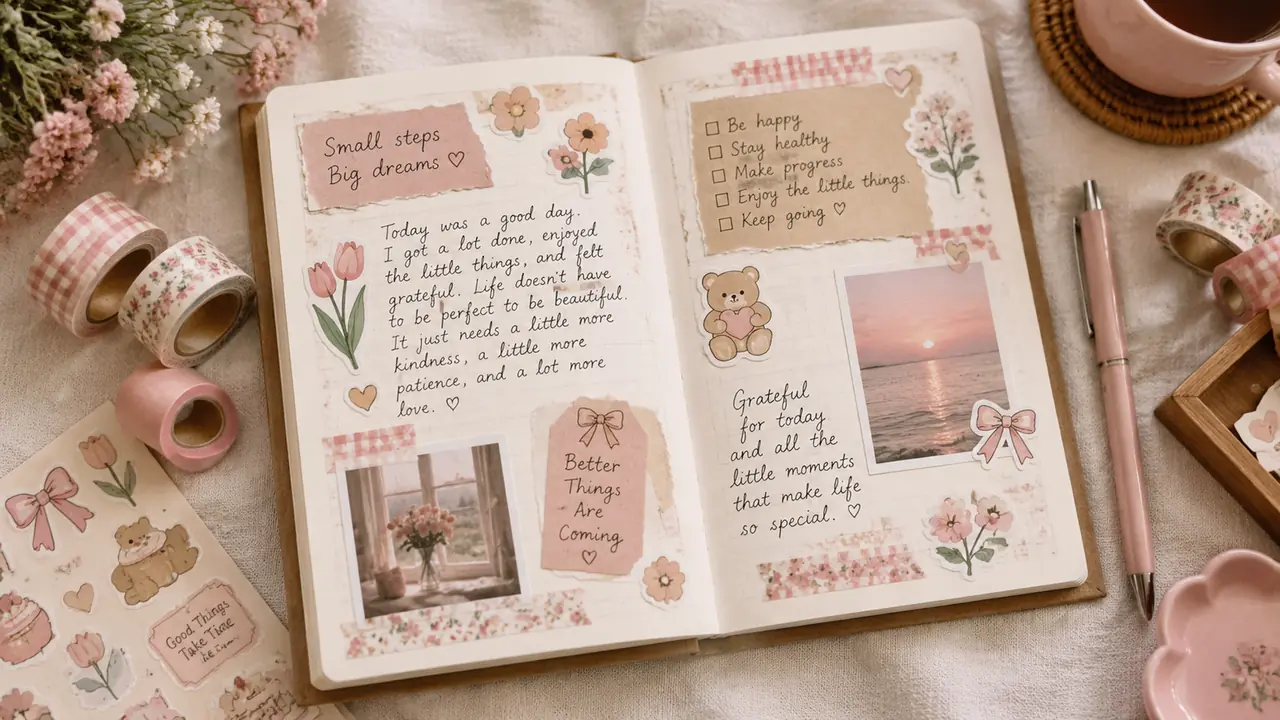 Small steps
Big dreams ♡
Today was a good day.
I got a lot done, enjoyed
the little things, and felt
grateful. Life doesn't have
to be perfect to be beautiful.
It just needs a little more
kindness, a little more
patience, and a lot more
love. ♡
Better
Things
Are
Coming
♡
☐ Be happy
☐ Stay healthy
☐ Make progress
☐ Enjoy the little things.
☐ Keep going ♡
Grateful
for today
and all the
little moments
that make life
so special. ♡
Good Things
Take Time